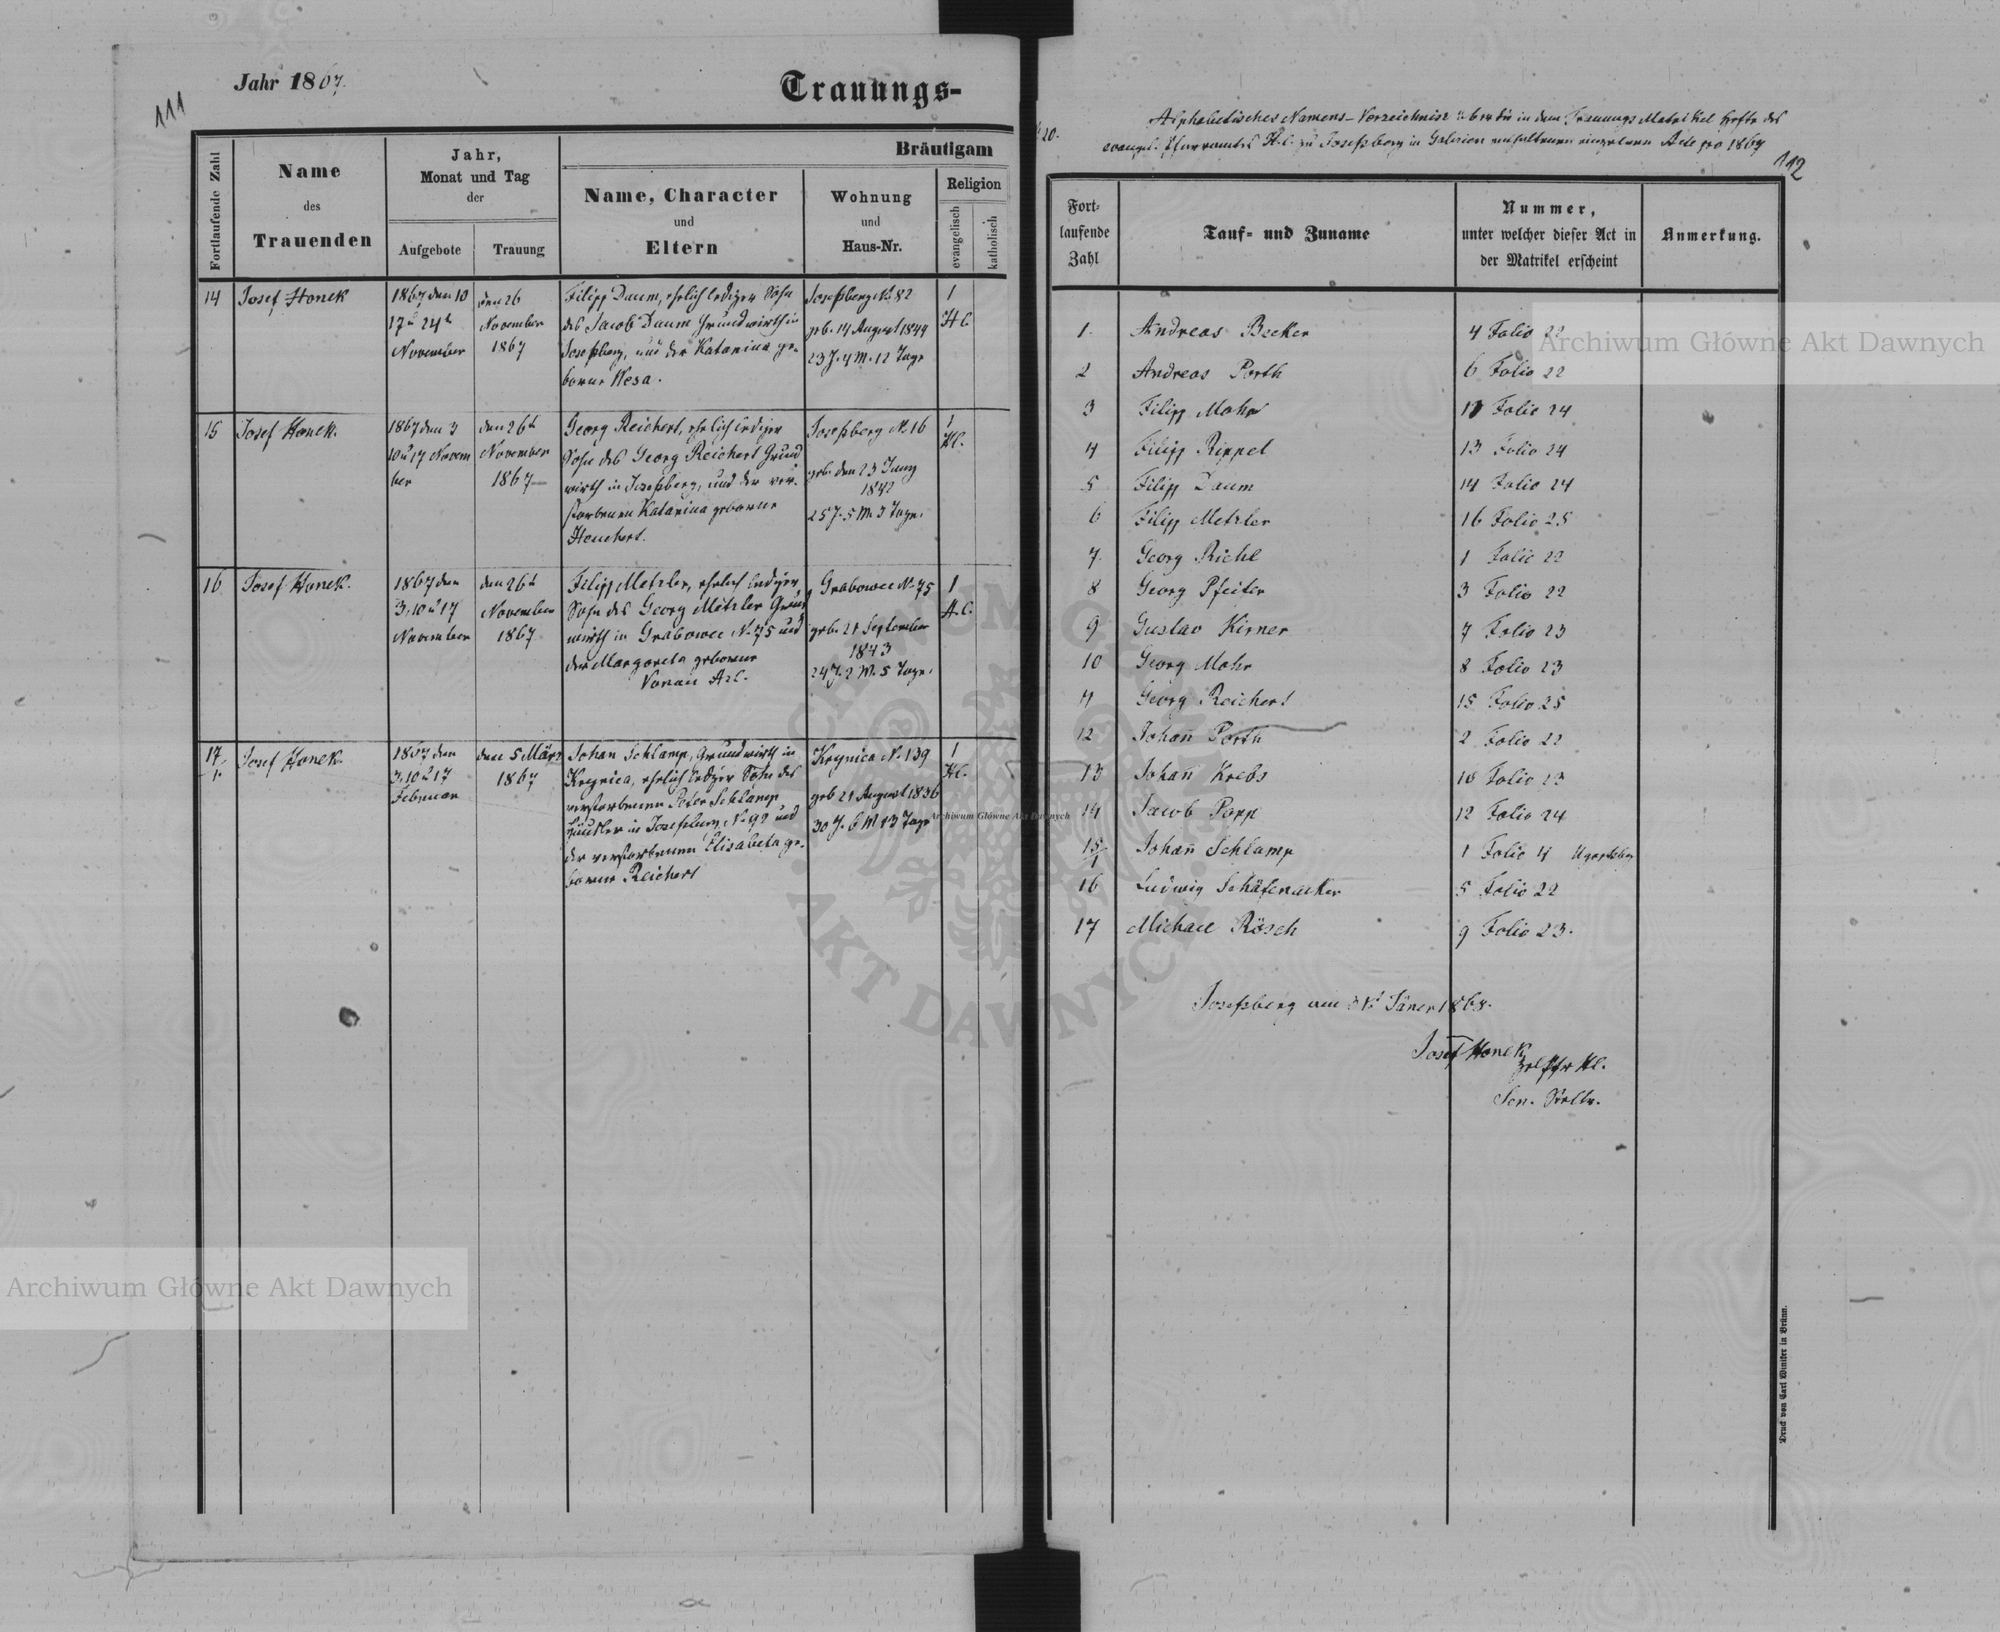 111
Jahr 1867.
Trauungs-
Fortlaufende Zahl
Name
des
Trauenden
Jahr,
Monat und Tag
der
Aufgebote
Trauung
Bräutigam
Name, Character
und
Eltern
Wohnung
und
Haus-Nr.
Religion
evangelisch
katholisch
14
Josef Honek
1867 den 10
17 u 24t
November
den 26
November
1867
Filipp Daum, ehrlich lediger Sohn
des Jacob Daum Grundwirth in
Josefsberg, und der Katarina ge-
borene Wesa.
Josefsberg N. 82
geb. 14 August 1844
23 J. 4 M. 12 Tage
1
H.C.
15
Josef Honek.
1867 den 3
10 u 17 Novem
ber
den 26t
November
1867
Georg Reichert, ehrlich lediger
Sohn des Georg Reichert Grund
wirth in Josefsberg, und der ver-
storbenen Katarina geborene
Heuchert.
Josefsberg N. 16
geb. den 23 Juny
1842
25 J. 5 M. 3 Tage.
1
H.C.
16
Josef Honek.
1867 den
3, 10 u 17
November
den 26t
November
1867
Filipp Metzler, ehrlich lediger
Sohn des Georg Metzler Grund
wirth in Grabowce N. 75 und
der Margareta geborene
Grabowce N. 75
geb. 21 September
1843
24 J. 2 M. 5 Tage.
1
H.C.
17/1.
Josef Honek.
1867 den
3, 10 u 17
Februar
den 5 März
1867
Johan Schlamp, Grundwirth in
Krynica, ehrlich lediger Sohn des
verstorbenen Peter Schlamp
Häusler in Josefsberg, N. 92 und
der verstorbenen Elisabeta ge-
borene Reichert
Krynica N. 139
geb 21 August 1836
30 J. 6 M 13 Tage
1
H.C.
20.
Alphabetisches Namens-Verzeichniss über die in dem Trauungs Matrikel Hefte des
evangel. Pfarramtes H.C. zu Josefsberg in Galizien enthaltenen einzelnen Acte pro 1867
112
Fort-
laufende
Zahl
Tauf- und Zuname
Nummer,
unter welcher dieser Act in
der Matrikel erscheint
Anmerkung.
1. Andreas Becker 4 Folio 22
2 Andreas Porth 6 Folio 22
3 Filipp Mohr 11 Folio 24
4 Filipp Rippel 13 Folio 24
5 Filipp Daum 14 Folio 24
6 Filipp Metzler 16 Folio 25
7. Georg Riehl 1 Folio 22
8 Georg Pfeifer 3 Folio 22
9 Gustav Kirner 7 Folio 23
10 Georg Mohr 8 Folio 23
11 Georg Reichert 15 Folio 25
12 Johan̄ Porth 2 Folio 22
13 Johan̄ Krebs 10 Folio 23
14 Jacob Popp 12 Folio 24
15/1 Johan̄ Schlamp 1 Folio 4 Ugartsberg
16 Ludwig Schäfenacker 5 Folio 22
17 Michael Rösch 9 Folio 23.
Josefsberg am 31t Jäner 1868.
Josef Honek
Druck von Carl Winiker in Brünn.
Archiwum Główne Akt Dawnych
Archiwum Główne Akt Dawnych
Archiwum Główne Akt Dawnych